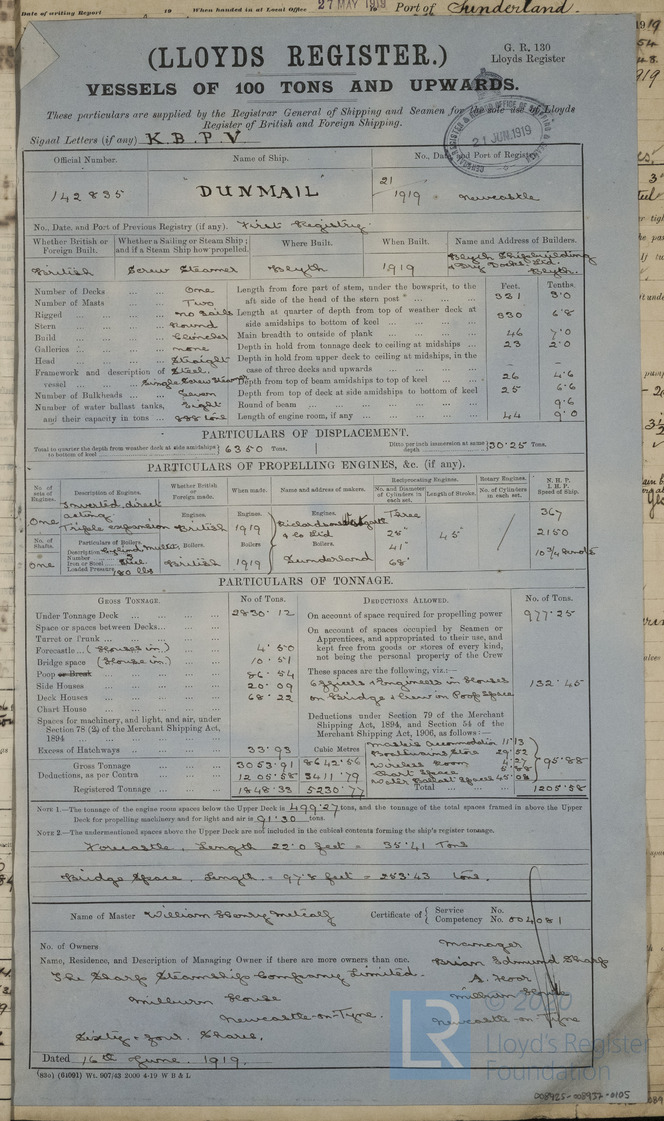 Date of writing Report 19 When handed in at Local Office 27 MAY 1919 Port of Sunderland.
(LLOYDS REGISTER.)
G. R. 130
Lloyds Register
VESSELS OF 100 TONS AND UPWARDS.
These particulars are supplied by the Registrar General of Shipping and Seamen for the sole use of Lloyds
Register of British and Foreign Shipping.
21 JUN. 1919
Signal Letters (if any) K.B.P.V
Official Number. Name of Ship. No., Date, and Port of Registry.
142835 DUNMAIL 21 1919 Newcastle
No., Date, and Port of Previous Registry (if any). First Registry.
Whether British or Foreign Built. Whether a Sailing or Steam Ship; and if a Steam Ship how propelled. Where Built. When Built. Name and Address of Builders.
British Screw Steamer Blyth 1919 Blyth Shipbuilding & Dry Docks Ltd. Blyth.
Feet. Tenths.
Number of Decks One Length from fore part of stem, under the bowsprit, to the
Number of Masts Two aft side of the head of the stern post 331 3·0
Rigged no sails Length at quarter of depth from top of weather deck at
Stern Round side amidships to bottom of keel 330 6·8
Build Clencher Main breadth to outside of plank 46 7·0
Galleries none Depth in hold from tonnage deck to ceiling at midships 23 2·0
Head Straight Depth in hold from upper deck to ceiling at midships, in the
Framework and description of Steel. case of three decks and upwards – –
vessel Single Screw Steamer Depth from top of beam amidships to top of keel 26 4·6
Number of Bulkheads Seven Depth from top of deck at side amidships to bottom of keel 25 6·6
Number of water ballast tanks, Eight Round of beam 9·6
and their capacity in tons 888 tons Length of engine room, if any 44 9·0
PARTICULARS OF DISPLACEMENT.
Total to quarter the depth from weather deck at side amidships to bottom of keel 6350 Tons. Ditto per inch immersion at same depth 30·25 Tons.
PARTICULARS OF PROPELLING ENGINES, &c. (if any).
No. of sets of Engines. Description of Engines. Whether British or Foreign made. When made. Name and address of makers. Reciprocating Engines. No. and Diameter of Cylinders in each set. Length of Stroke. Rotary Engines. No. of Cylinders in each set. N. H. P. I. H. P. Speed of Ship.
One Inverted direct acting Triple expansion Engines. British Engines. 1919 Engines. Richardsons Westgarth & Co Ltd Three 25" 41" 68" 45" 367
2150
10¾ knots
No. of Shafts. Particulars of Boilers. Boilers. Boilers Boilers.
One Description Cylind Mult.
Number 3
Iron or Steel Steel British 1919 Sunderland
Loaded Pressure 180 lbs
PARTICULARS OF TONNAGE.
GROSS TONNAGE. No of Tons. DEDUCTIONS ALLOWED. No. of Tons.
Under Tonnage Deck 2830·12 On account of space required for propelling power 977·25
Space or spaces between Decks On account of spaces occupied by Seamen or
Turret or Trunk Apprentices, and appropriated to their use, and
Forecastle (Houses in) 4·50 kept free from goods or stores of every kind,
Bridge space (House in) 10·51 not being the personal property of the Crew
Poop or Break 86·54 These spaces are the following, viz.:—
Side Houses 20·09 Officers & Engineers in Houses 132·45
Deck Houses 68·22 on Bridge & Crew in Poop Space
Chart House
Spaces for machinery, and light, and air, under Deductions under Section 79 of the Merchant
Section 78 (2) of the Merchant Shipping Act, Shipping Act, 1894, and Section 54 of the
1894 Merchant Shipping Act, 1906, as follows:—
Excess of Hatchways 33·93 Cubic Metres Master's Accommodation 11·13
Boatswains Store 29·52
Gross Tonnage 3053·91 8642·56 Wireless Room 4·27 95·88
Deductions, as per Contra 1205·58 3411·79 Chart Space 5·88
Water Ballast Spaces 45·08
Registered Tonnage 1848·33 5230·77 Total 1205·58
NOTE 1.—The tonnage of the engine room spaces below the Upper Deck is 499·27 tons, and the tonnage of the total spaces framed in above the Upper
Deck for propelling machinery and for light and air is 91·30 tons.
NOTE 2.—The undermentioned spaces above the Upper Deck are not included in the cubical contents forming the ship's register tonnage.
Forecastle, Length 22·0 feet = 35·41 Tons
Bridge Space, Length = 97·8 feet = 253·43 tons.
Name of Master William Henry Metcalf Certificate of Service Competency No. No. 004081
No. of Owners
Name, Residence, and Description of Managing Owner if there are more owners than one.
Manager
The Sharp Steamship Company Limited. Brian Edmund Sharp
A. Floor
Milburn House Milburn House
Newcastle-on-Tyne. Newcastle-on-Tyne
Sixty-four Shares.
Dated 16th June. 1919.
(830) (64091) Wt. 907/43 2000 4-19 W B & L
LR © 2020
Lloyd's Register
Foundation
D08925-008937-0105